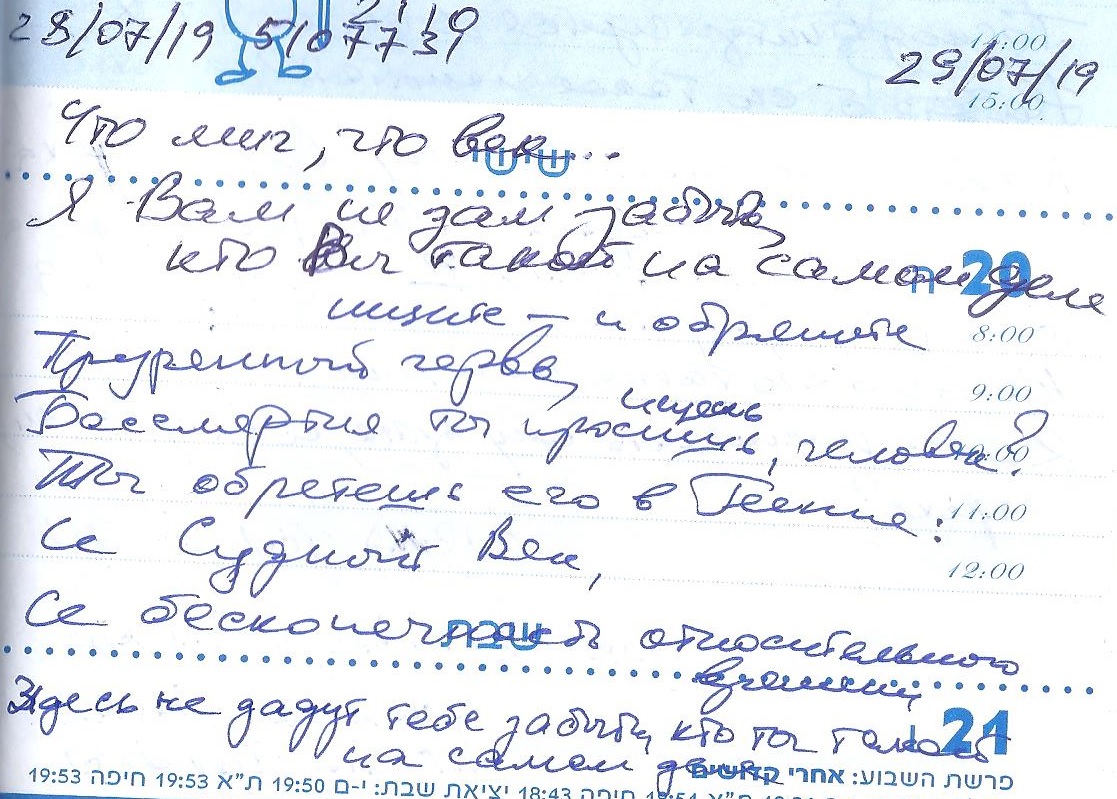 28/07/19 29/07/19
14:00
15:00
Что миг, что век...
שישי
Я Вам не дам забыть,
кто Вы такой на самом деле
20
ищите – и обрящете
8:00
Презренный червь,
9:00
ищешь
Бессмертия ты просишь, человек?
Ты обретешь его в Геенне:
11:00
Се Судный Век,
12:00
Се бесконечность относительного
שבת
времени,
Здесь не дадут тебе забыть, кто ты такой
21
на самом деле
פרשת השבוע: אחרי קדושים
יציאת שבת: י-ם 19:50 ת"א 19:53 חיפה 19:53
18:43 חיפה